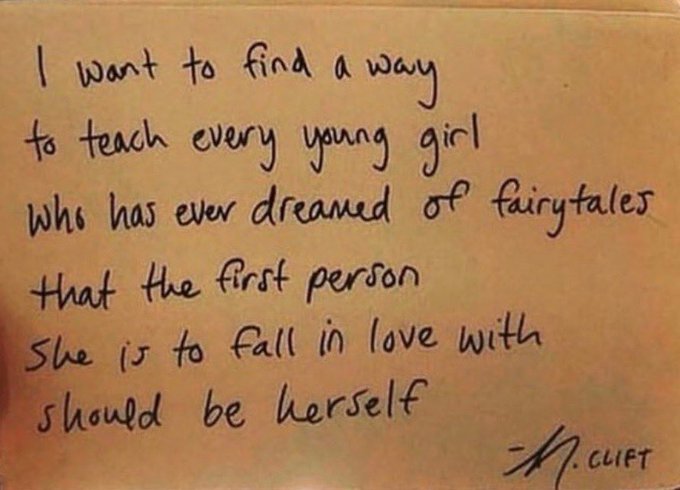 I want to find a way
to teach every young girl
who has ever dreamed of fairytales
that the first person
she is to fall in love with
should be herself
- M. CLIFT